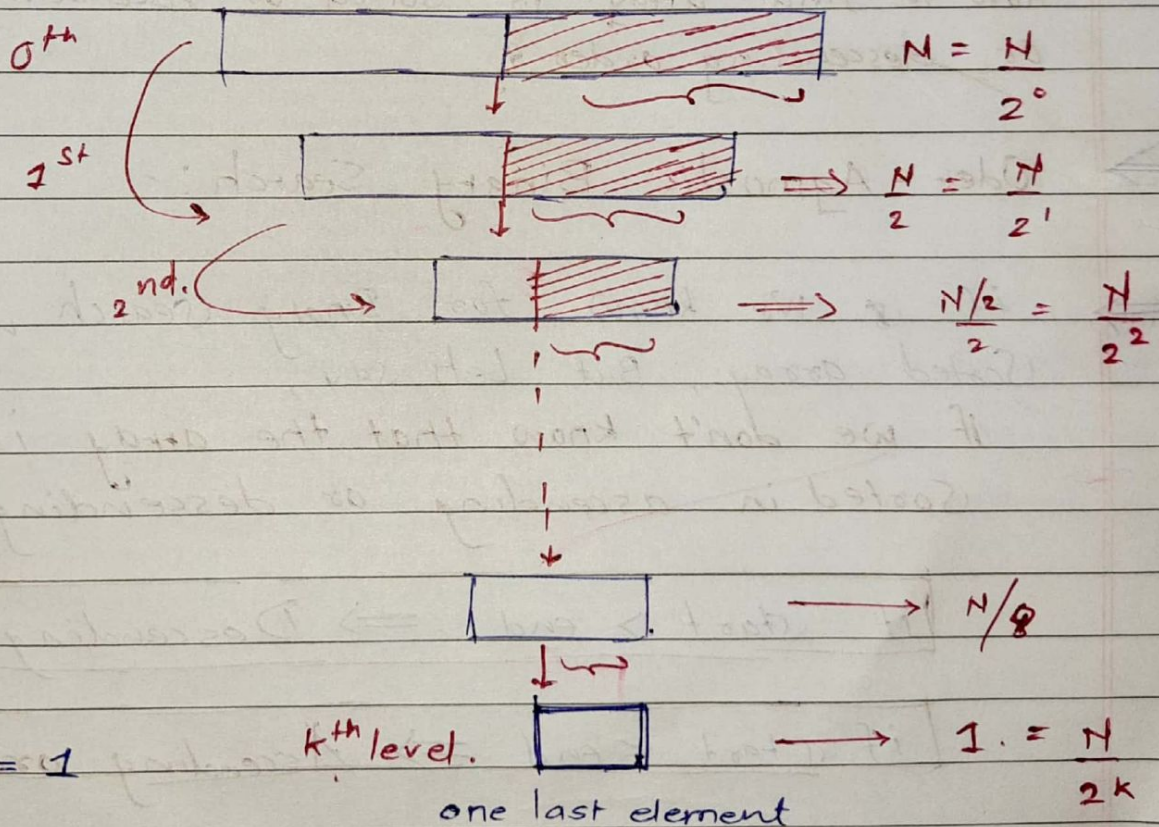 0th N = N/2^0
1st => N/2 = N/2^1
2nd. => N/2/2 = N/2^2
→ N/8
= 1 kth level. → 1. = N/2^k
one last element